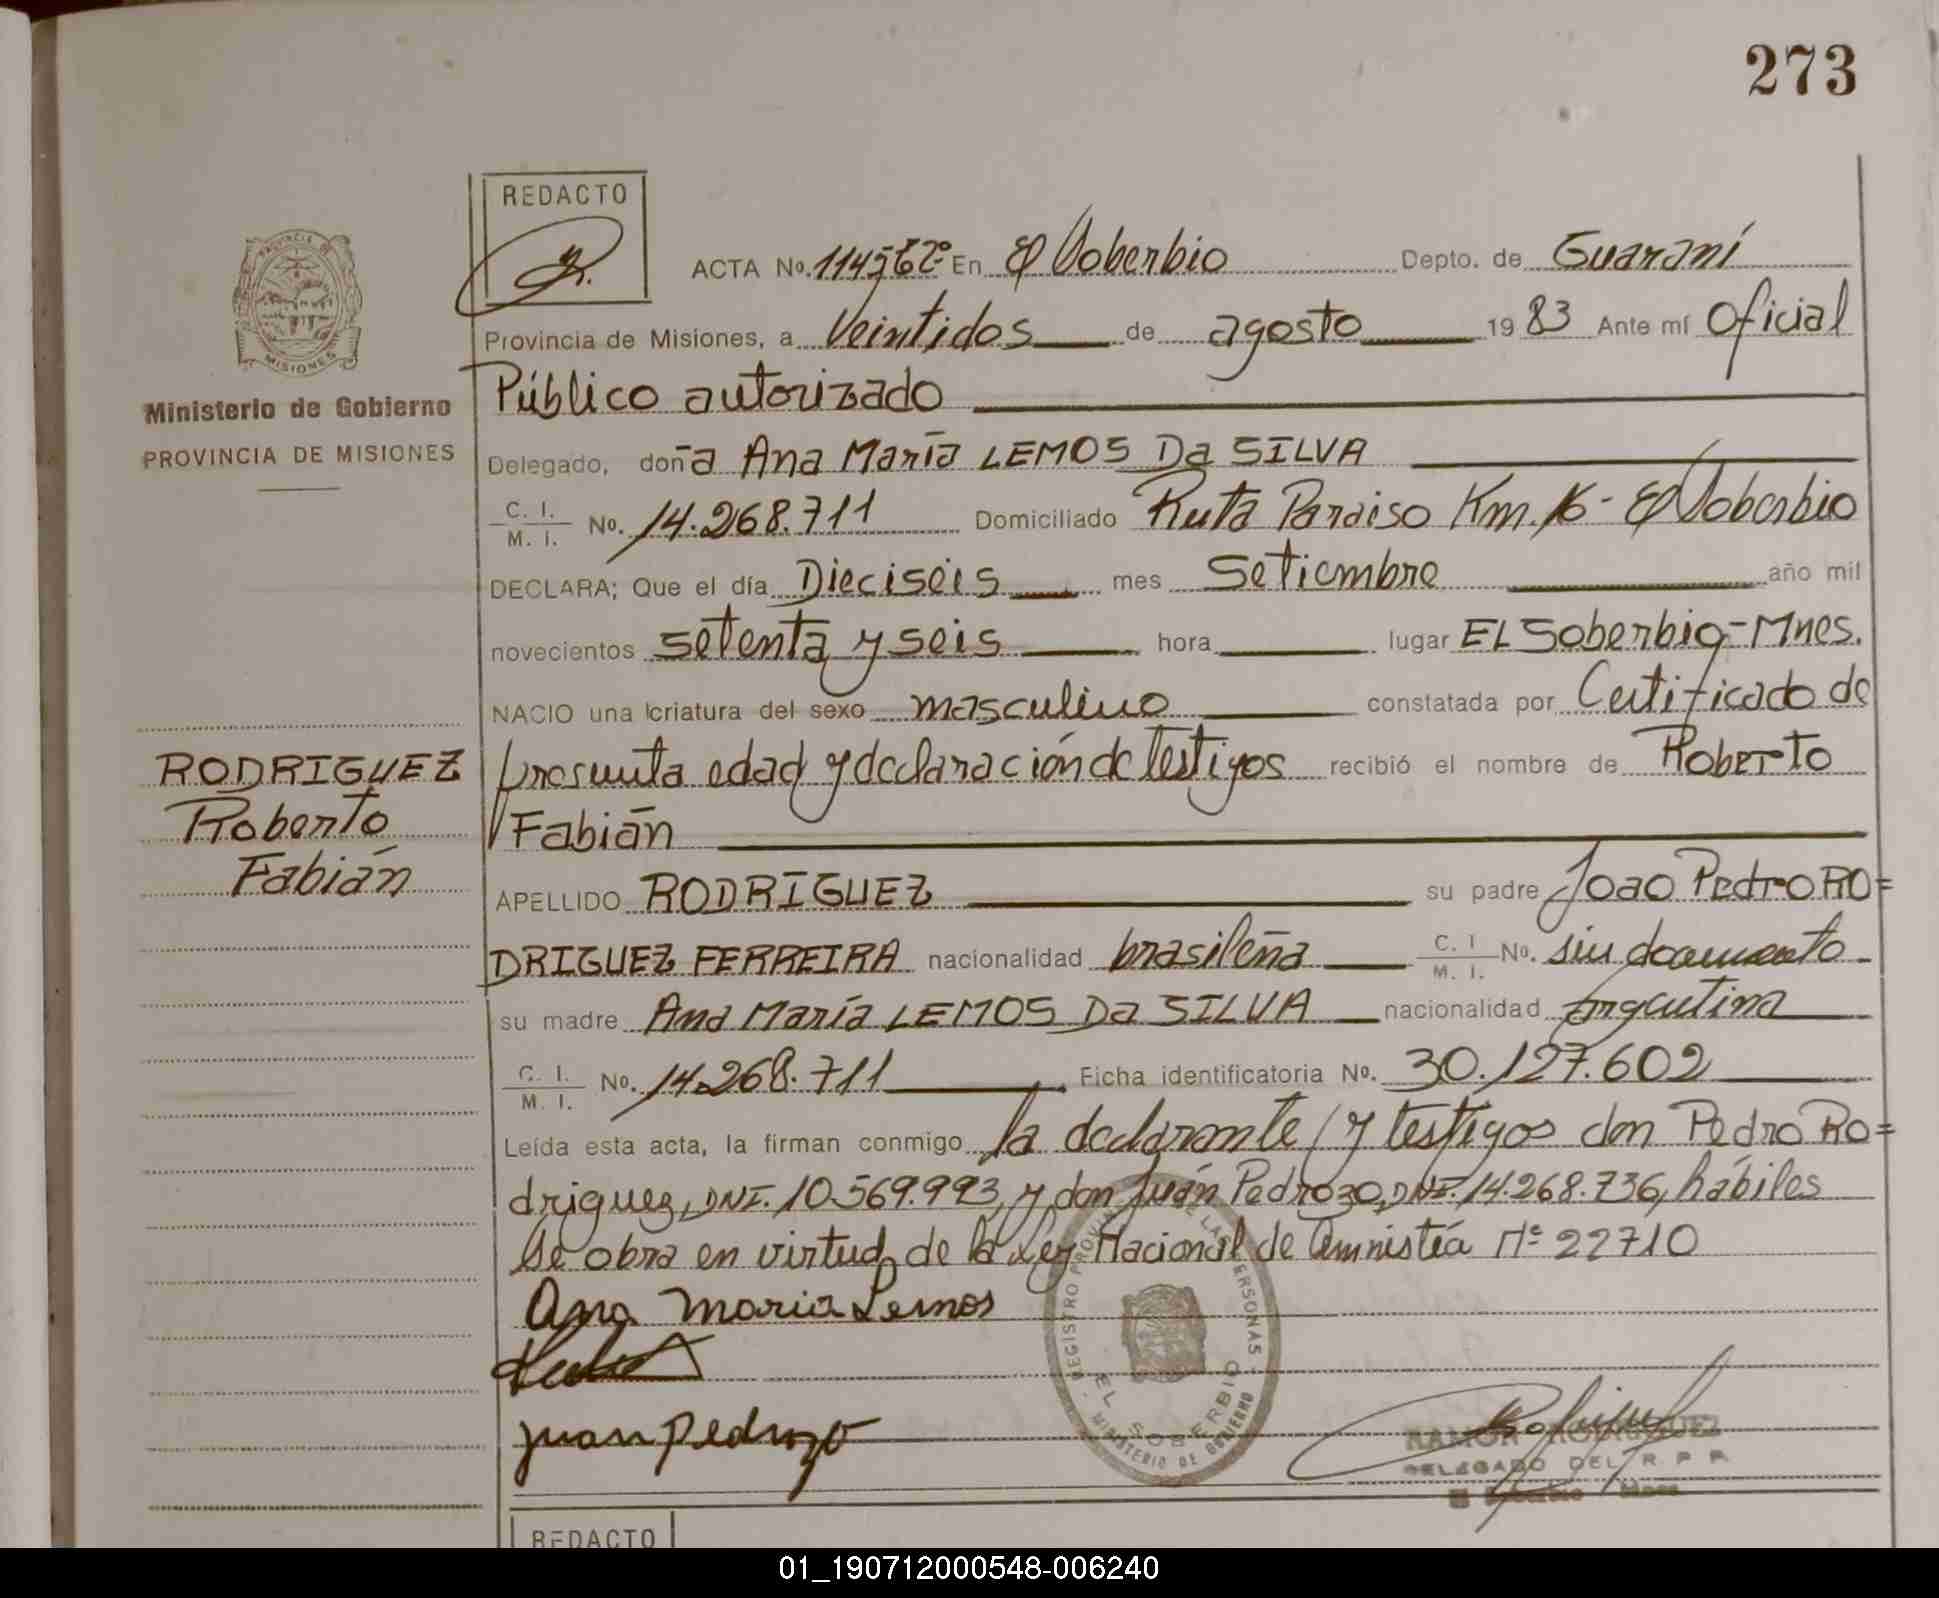 273
REDACTO
PROVINCIA DE
MISIONES
Ministerio de Gobierno
PROVINCIA DE MISIONES
ACTA No. En El Soberbio Depto. de Guaraní
Provincia de Misiones, a Veintidos de agosto 1983 Ante mí Oficial
Público autorizado
Delegado, doña Ana María LEMOS Da SILVA
C. I. M. I. No. 14.268.711 Domiciliado Ruta Paraiso Km. 16 - El Soberbio
DECLARA; Que el día Dieciséis mes Setiembre año mil
novecientos setenta y seis hora lugar EL Soberbio-Mnes.
NACIO una criatura del sexo masculino constatada por Certificado de
presunta edad y declaración de testigos recibió el nombre de Roberto
Fabián
RODRIGUEZ
Roberto
Fabián
APELLIDO RODRÍGUEZ su padre Joao Pedro RO=
DRIGUEZ FERREIRA nacionalidad brasileña C. I M. I. No. sin documento
su madre Ana María LEMOS Da SILVA nacionalidad Argentina
C. I. M. I. No. 14.268.711 Ficha identificatoria No. 30.127.602
Leída esta acta, la firman conmigo la declarante / y testigos don Pedro Ro=
driguez, DNI. 10.569.993, y don Juán Pedrozo, DNI. 14.268.736, hábiles
Se obra en virtud de la Ley Nacional de Amnistía Nº 22710
Ana Maria Lemos
juan Pedrozo
REGISTRO PROVINCIAL DE LAS PERSONAS
EL SOBERBIO
MINISTERIO DE GOBIERNO
RAMON RODRIGUEZ
DELEGADO DEL R. P. P.
El Soberbio Mnes.
REDACTO
01_190712000548-006240